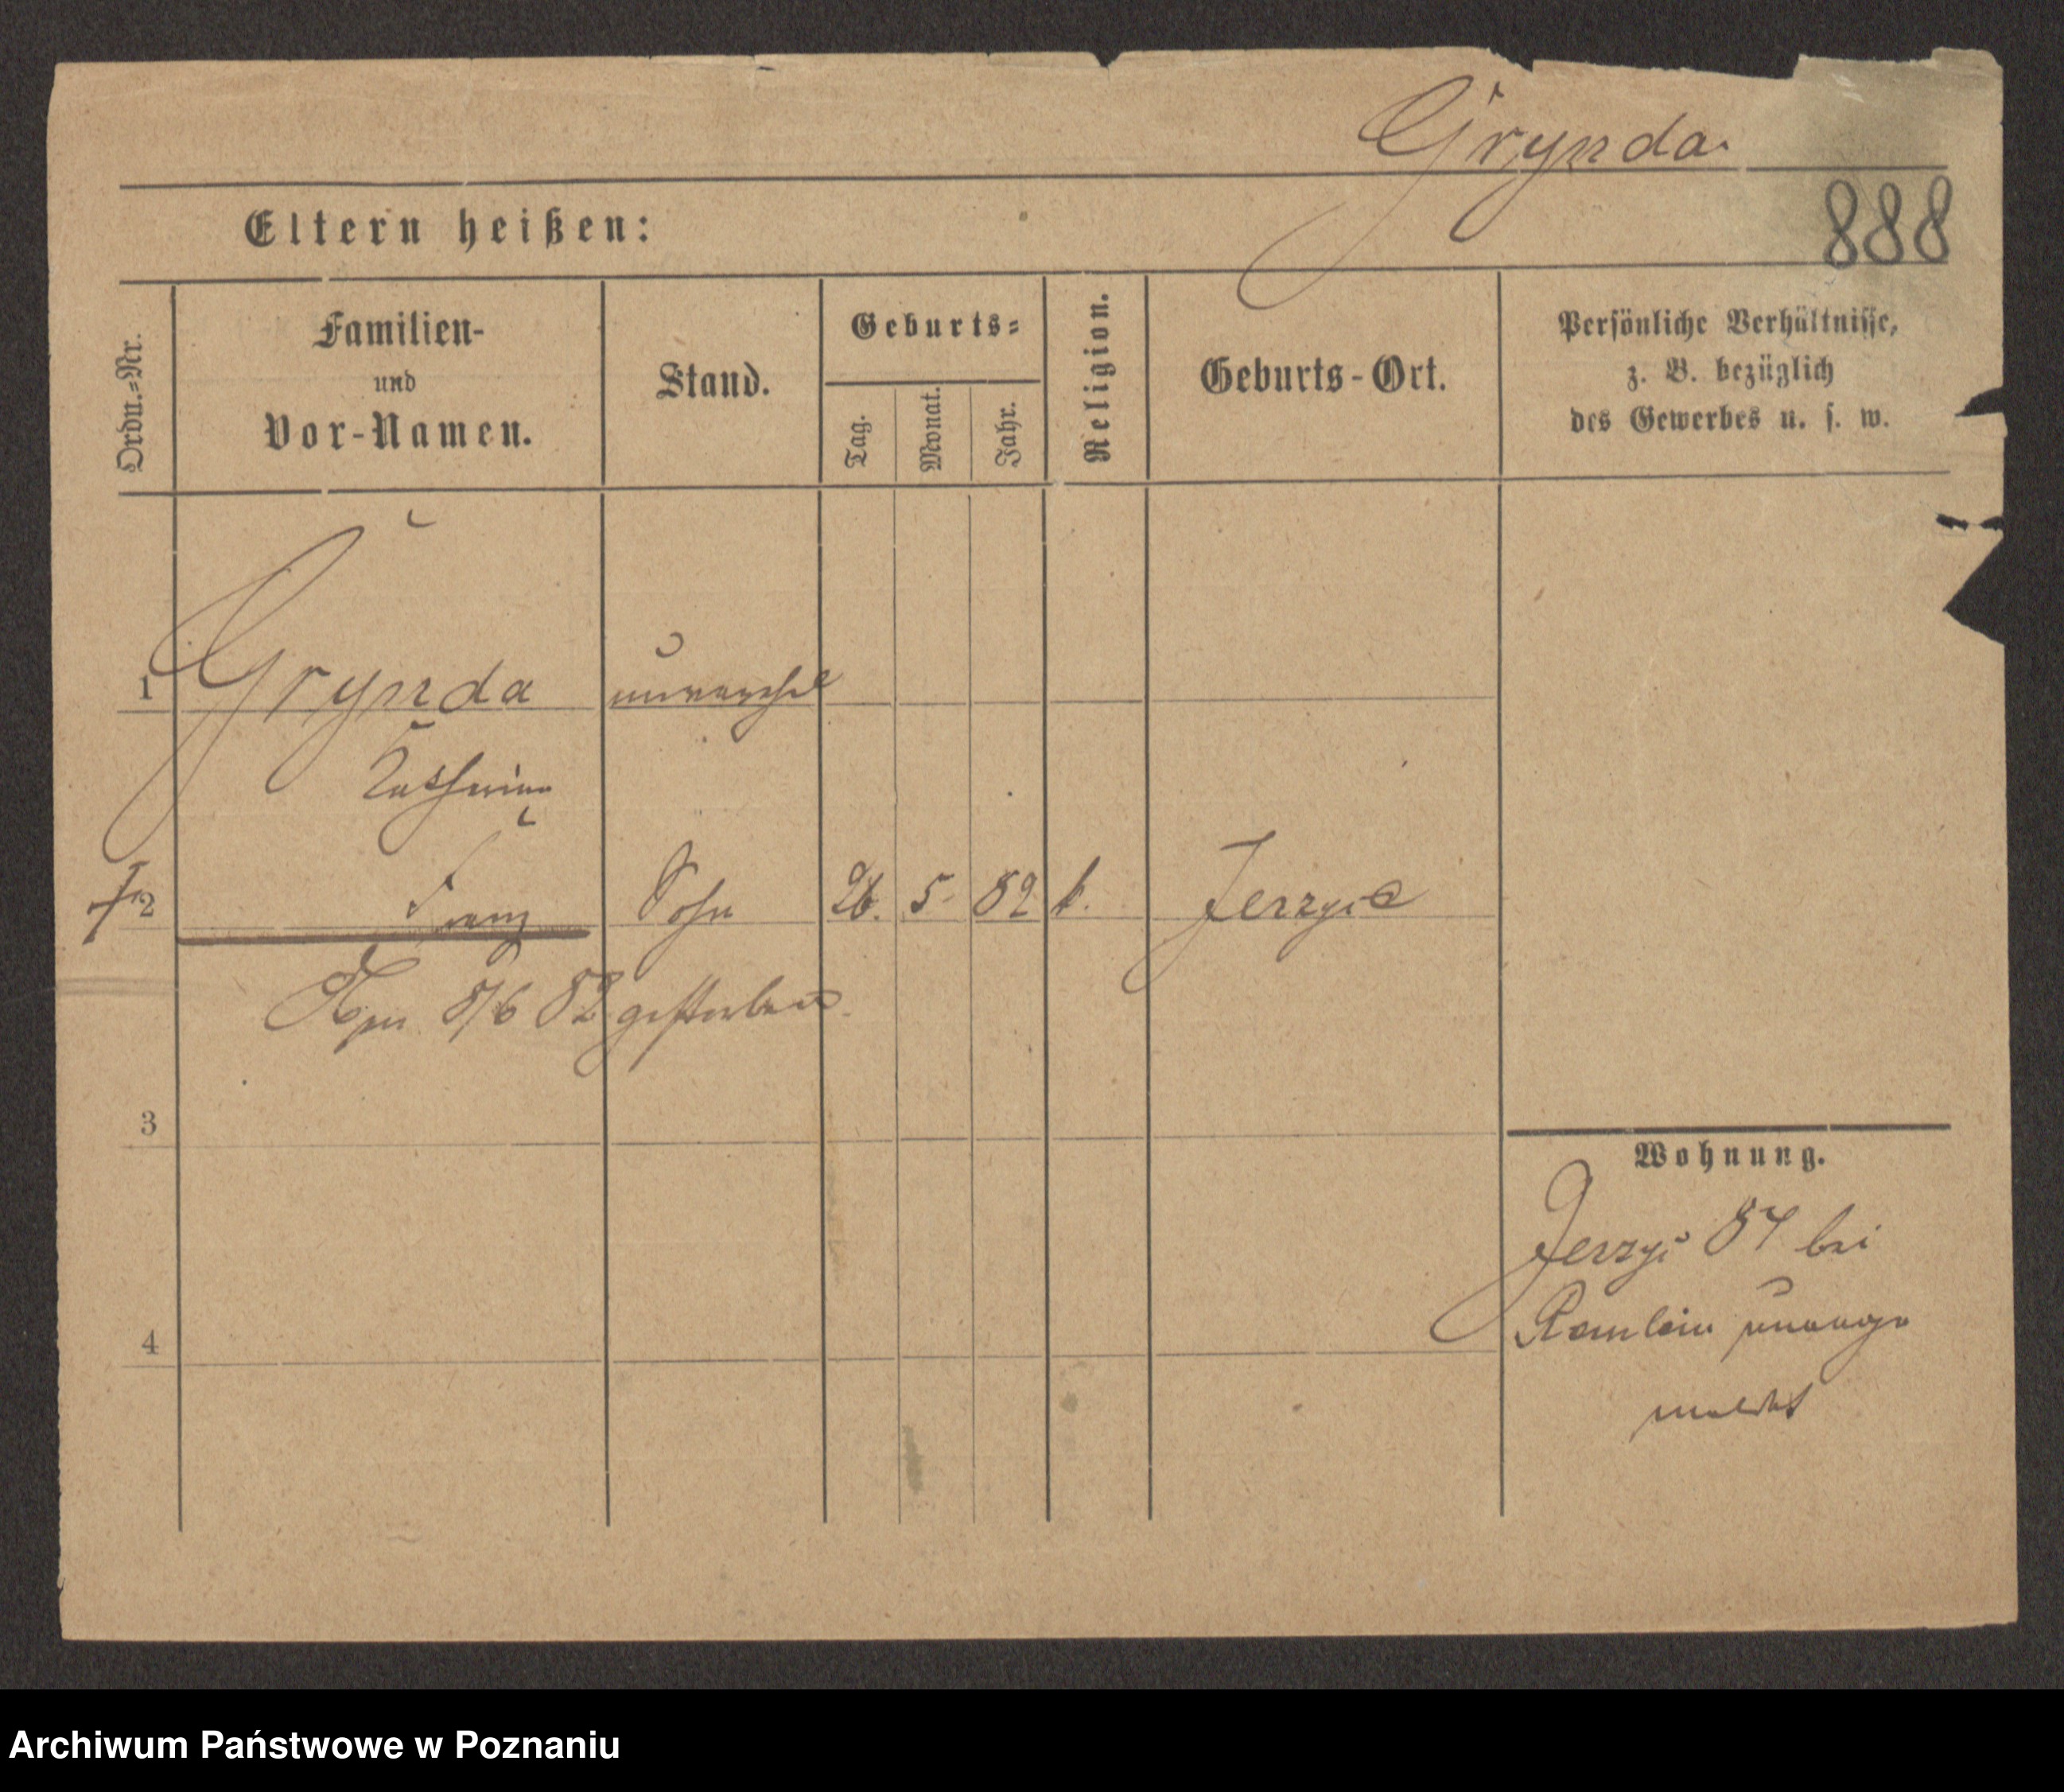 Grynda
888
Eltern heißen:
Ordn.-Nr.
Familien-
und
Vor-Namen.
Stand.
Geburts-
Tag.
Monat.
Jahr.
Religion.
Geburts-Ort.
Persönliche Verhältnisse,
z. B. bezüglich
des Gewerbes u. s. w.
1 Grynda
Katharina
2 Franz Sohn 26. 5. 82 k. Jerzyce
8/6 82 gestorben.
3
Wohnung.
Jerzyc 84 bei
4
Archiwum Państwowe w Poznaniu